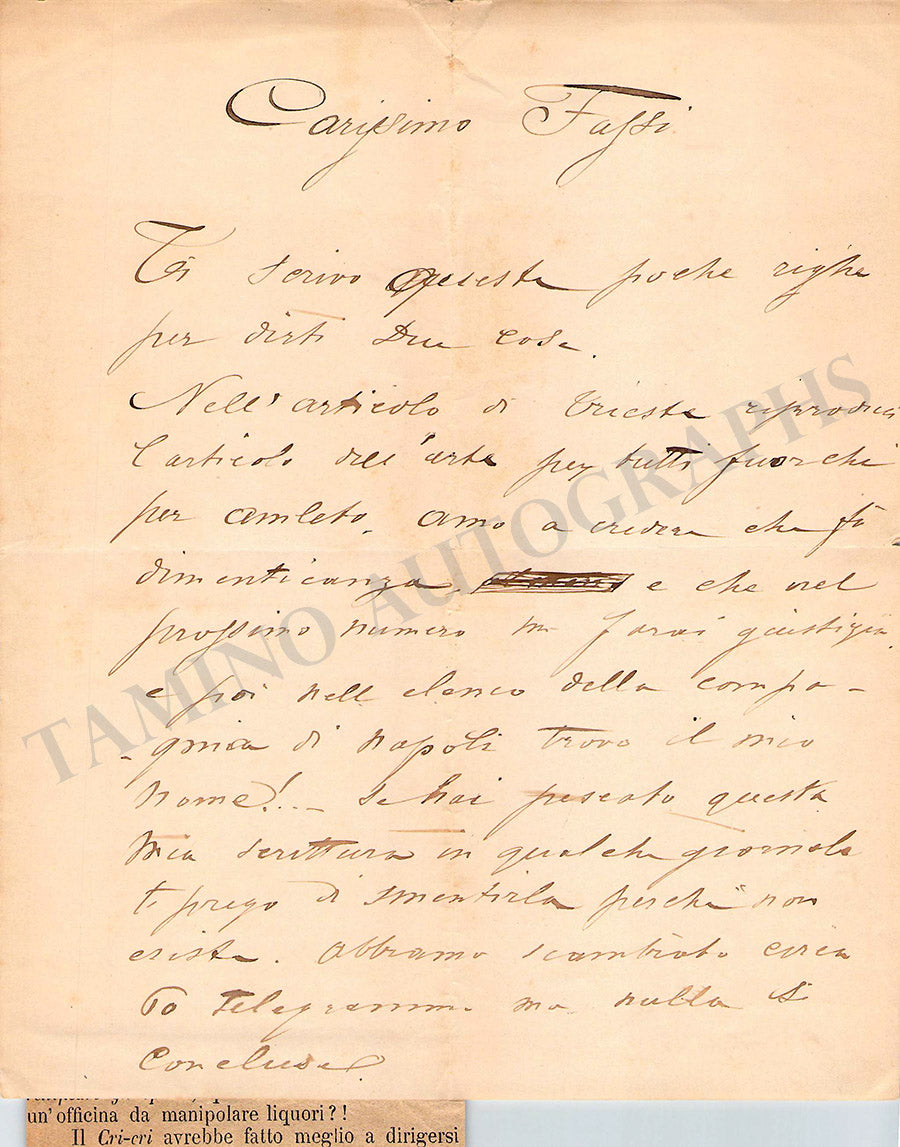 Carissimo Fassi
Ti scrivo queste poche righe
per dirti due cose.
Nell'articolo di Trieste riproduci
l'articolo dell'arte per tutti fuorchè
per amleto. amo a credere che fù
dimenticanza e che nel
prossimo numero mi farai giustizia.
e poi nell elenco della compa-
-gnia di napoli trovo il mio
nome!.- Se hai pescato questa
mia scrittura in qualche giornale
ti prego di smentirla perchè non
esiste. abbiamo scambiato circa
telegrammi ma nulla si
concluse.
un'officina da manipolare liquori?!
Il Cri-cri avrebbe fatto meglio a dirigersi
TAMINO AUTOGRAPHS